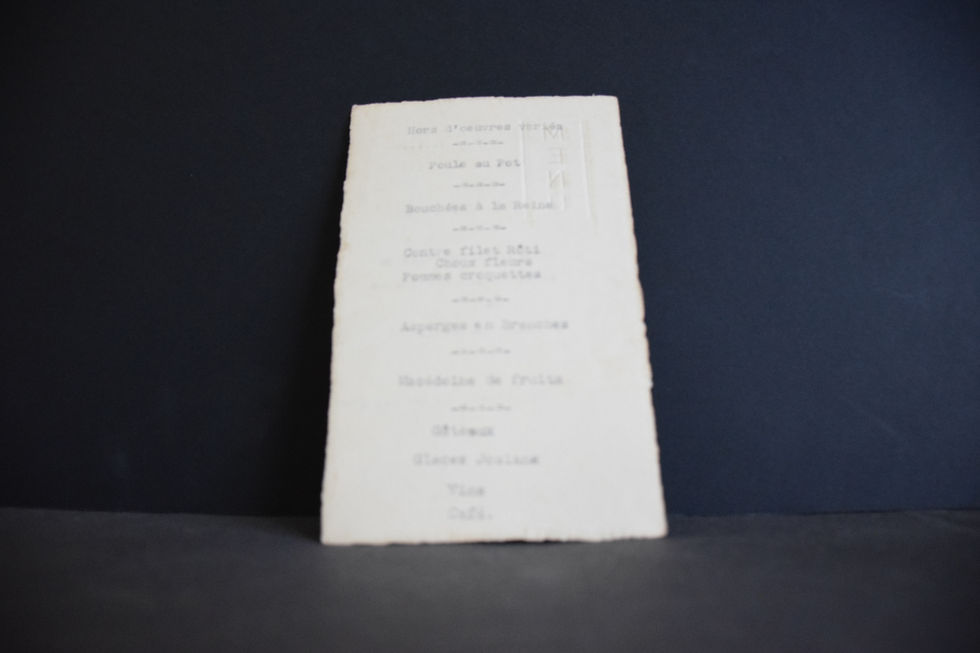 Hors d'oeuvres variés
-=-=-=-
Poule au Pot
-=-=-=-
Bouchées à la Reine
-=-=-=-
Contre filet Rôti
Choux fleurs
Pommes croquettes
-=-=-=-
Asperges en Branches
-=-=-=-
Macédoine de fruits
-=-=-=-
Gâteaux
Glaces
Vins
Café.
MENU